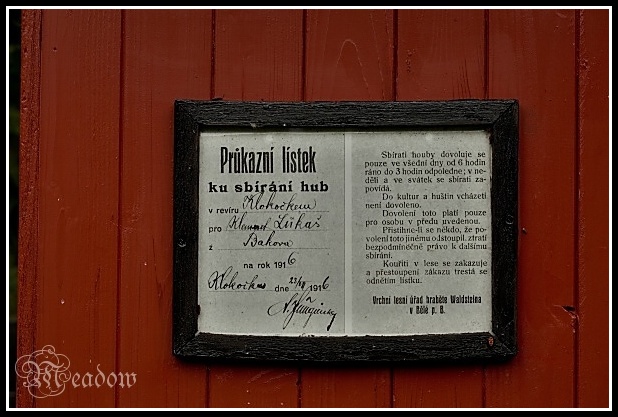 Průkazní lístek
ku sbírání hub
v revíru Klokočkem
pro Lukáš
z Bakova
na rok 1916
Klokočka dne 23/VI 1916
Sbírati houby dovoluje se
pouze ve všední dny od 6 hodin
ráno do 3 hodin odpoledne; v ne-
děli a ve svátek se sbírati za-
povídá.
Do kultur a huštin vcházeti
není dovoleno.
Dovolení toto platí pouze
pro osobu v předu uvedenou.
Přistihne-li se někdo, že po-
volení toto jinému odstoupil, ztratí
bezpodmínečně právo k dalšímu
sbírání.
Kouřiti v lese se zakazuje
a přestoupení zákazu trestá se
odnětím lístku.
Vrchní lesní úřad hraběte Waldsteina
v Bělé p. B.
Meadow